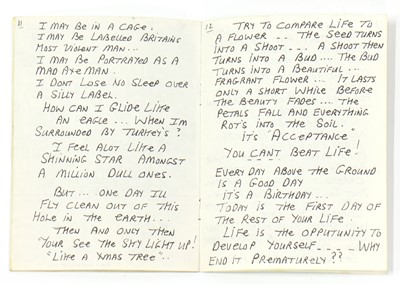 11
I MAY BE IN A CAGE.
I MAY BE LABELLED BRITAINS
MOST VIOLENT MAN...
I MAY BE PORTRAYED AS A
MAD AXE MAN.
I DONT LOSE NO SLEEP OVER
A SILLY LABEL.
HOW CAN I GLIDE LIKE
AN EAGLE... WHEN I'M
SURROUNDED BY TURKEY'S?
I FEEL ALOT LIKE A
SHINNING STAR AMONGST
A MILLION DULL ONES.
BUT... ONE DAY ILL
FLY CLEAN OUT OF THIS
HOLE IN THE EARTH...
THEN AND ONLY THEN
"YOUR SEE THE SKY LIGHT UP!
"LIKE A XMAS TREE"..
12
TRY TO COMPARE LIFE TO
A FLOWER.. THE SEED TURNS
INTO A SHOOT... A SHOOT THEN
TURNS INTO A BUD.... THE BUD
TURNS INTO A BEAUTIFUL...
FRAGRANT FLOWER... IT LASTS
ONLY A SHORT WHILE BEFORE
THE BEAUTY FADES.... THE
PETALS FALL AND EVERYTHING
ROT'S INTO THE SOIL.
IT'S "ACCEPTANCE"
YOU CAN'T BEAT LIFE!
EVERY DAY ABOVE THE GROUND
IS A GOOD DAY
IT'S A BIRTHDAY...
TODAY IS THE FIRST DAY OF
THE REST OF YOUR LIFE.
LIFE IS THE OPPUTUNITY TO
DEVELOP YOURSELF.... WHY
END IT PREMATURELY??